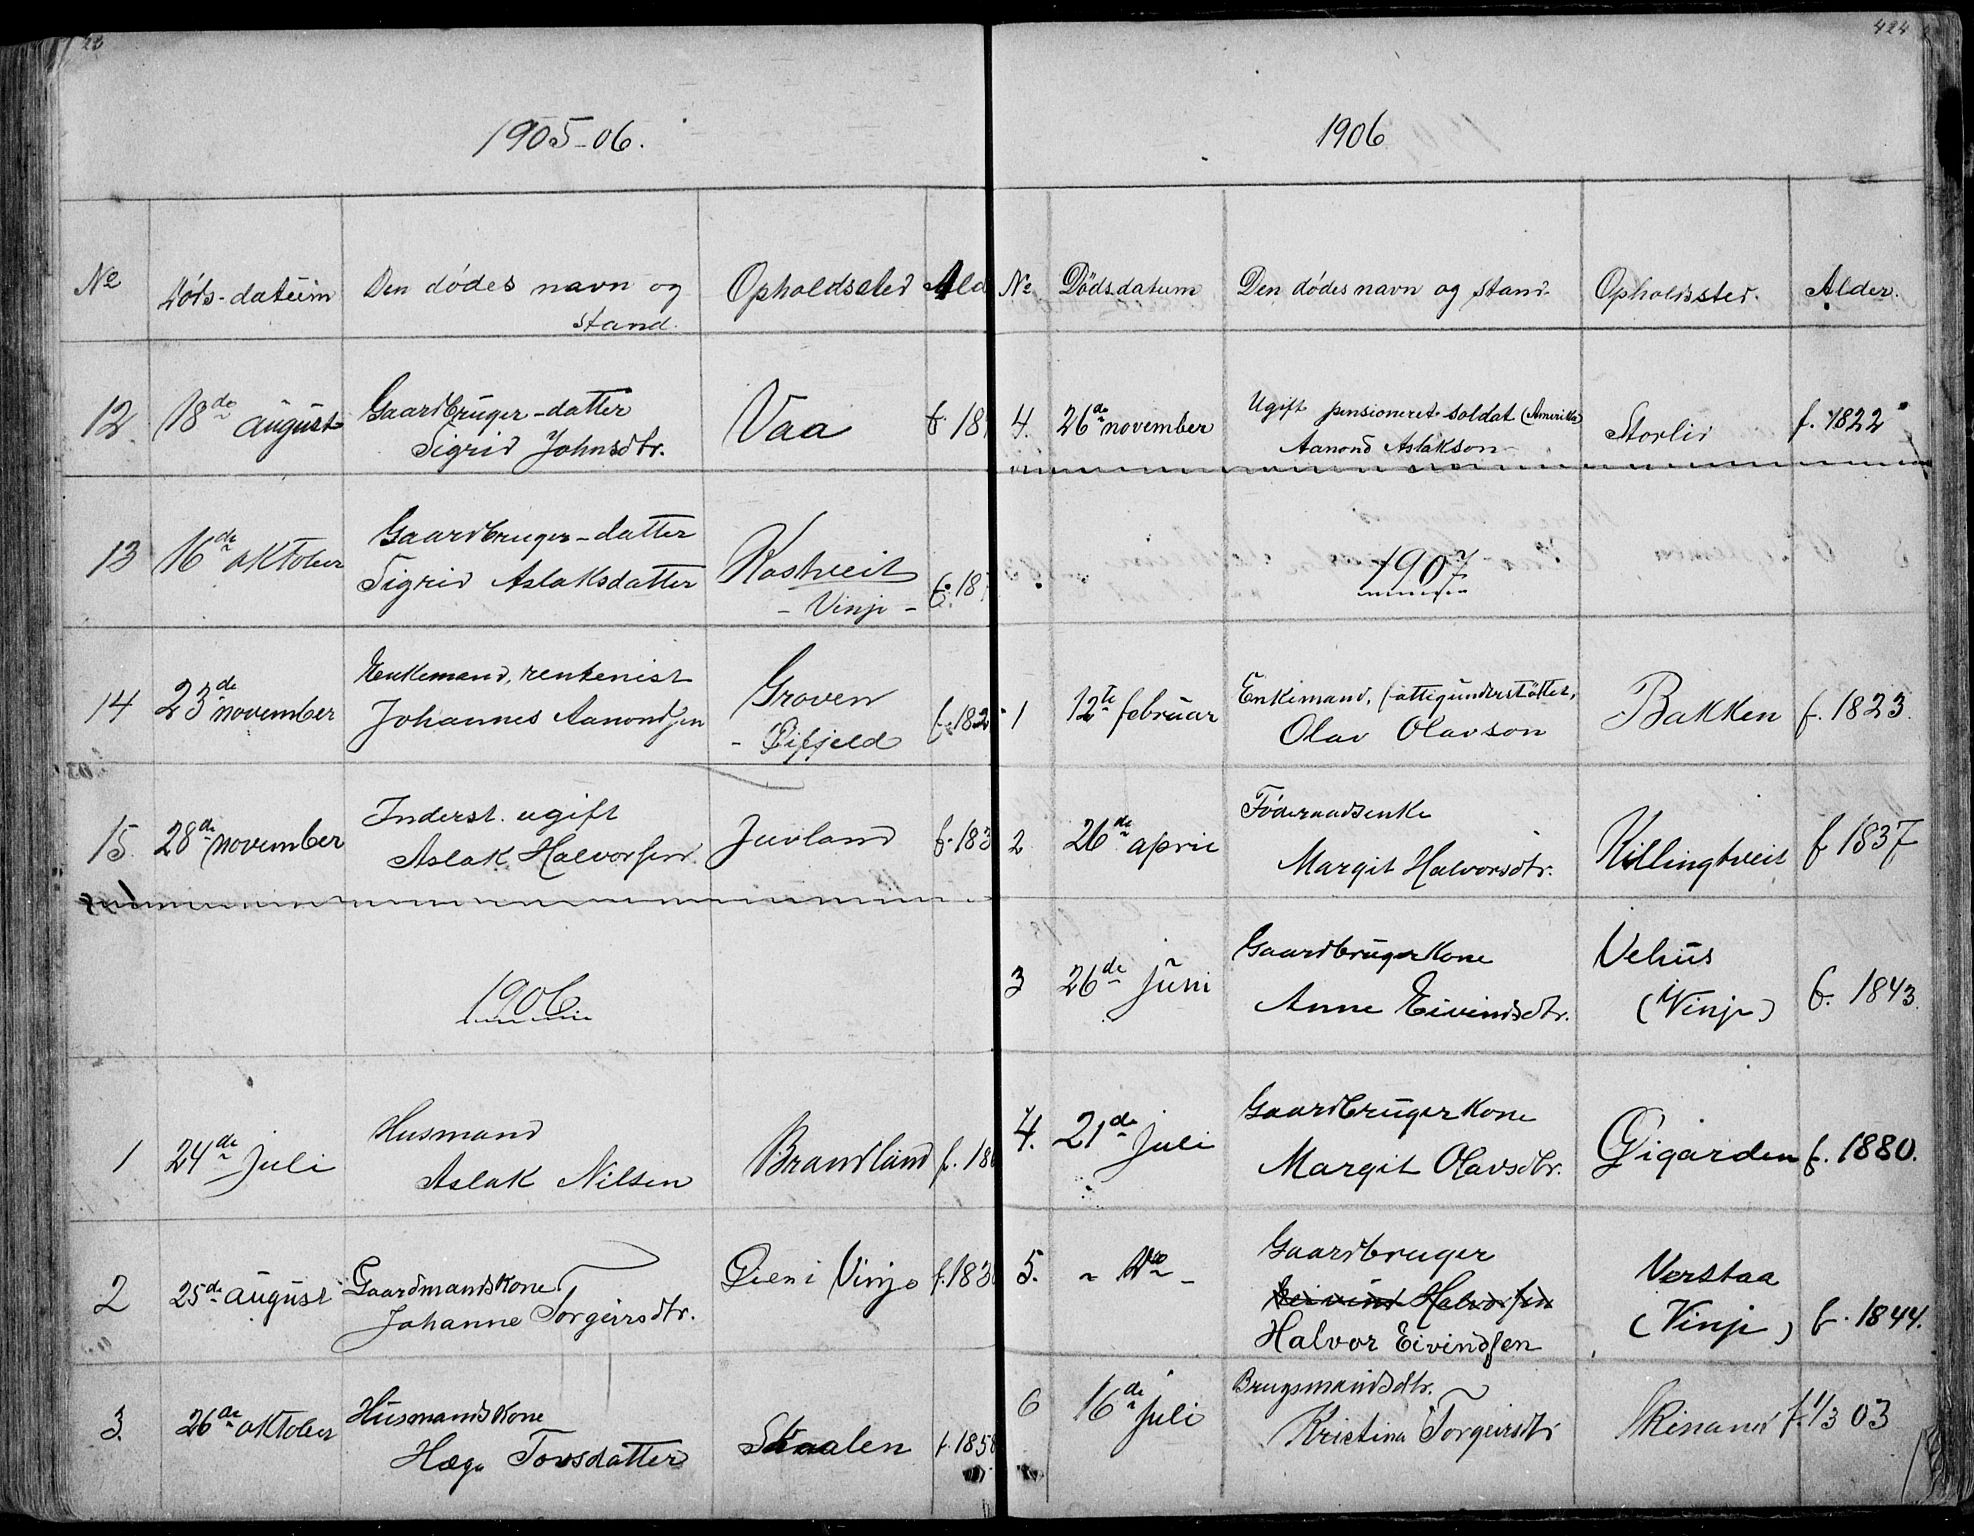 23
1905-06.
No Döds-datum Den dødes navn og Opholdssted Ald
stand.
12. 18de august Gaardbruger-datter Vaa f. 18
Sigrid Johnsdtr.
13 16de oktober Gaardbruger-datter Kostveit f. 187
Sigrid Aslaksdatter - Vinje -
14 23de november Enkemand, rentenist Groven f. 182
Johannes Aanondsen - Øifjeld
15. 28de november Inderst. ugift Juvland f. 183
Aslak Halvorsen
1906
1 24de juli Husmand Brandland f. 18
Aslak Nilsen
2 25de august Gaardmandskone Øien i Vinje f. 183
Johanne Torgeirsdtr.
3. 26de oktober Husmandskone Skaalen f. 1858
Hæge Tovsdatter
424
1906
No Dödsdatum Den dødes navn og stand. Opholdssted. Alder.
4. 26de november Ugift pensioneret soldat (Amerika) Storlid f. 1822
Aanond Aslakson
1907
1 12te februar Enkemand, fattigunderstöttet, Bakken f. 1823.
Olav Olavson
2 26de april Föderaadsenke Killingtveit f 1837
Margit Halvorsdtr.
3 26de juni Gaardbrugerkone Vehus f. 1843.
Anne Eivindsdtr. (Vinje)
4. 21de juli Gaardbrugerkone Øigarden f. 1880.
Margit Olavsdtr.
5. - Do - Gaardbruger Verstaa
Eivind Halvorsen
Halvor Eivindsen (Vinje) f. 1844.
6 16de juli Brugsmandsdtr. Skinand f. 1/3 03
Kristina Torgeirsdtr